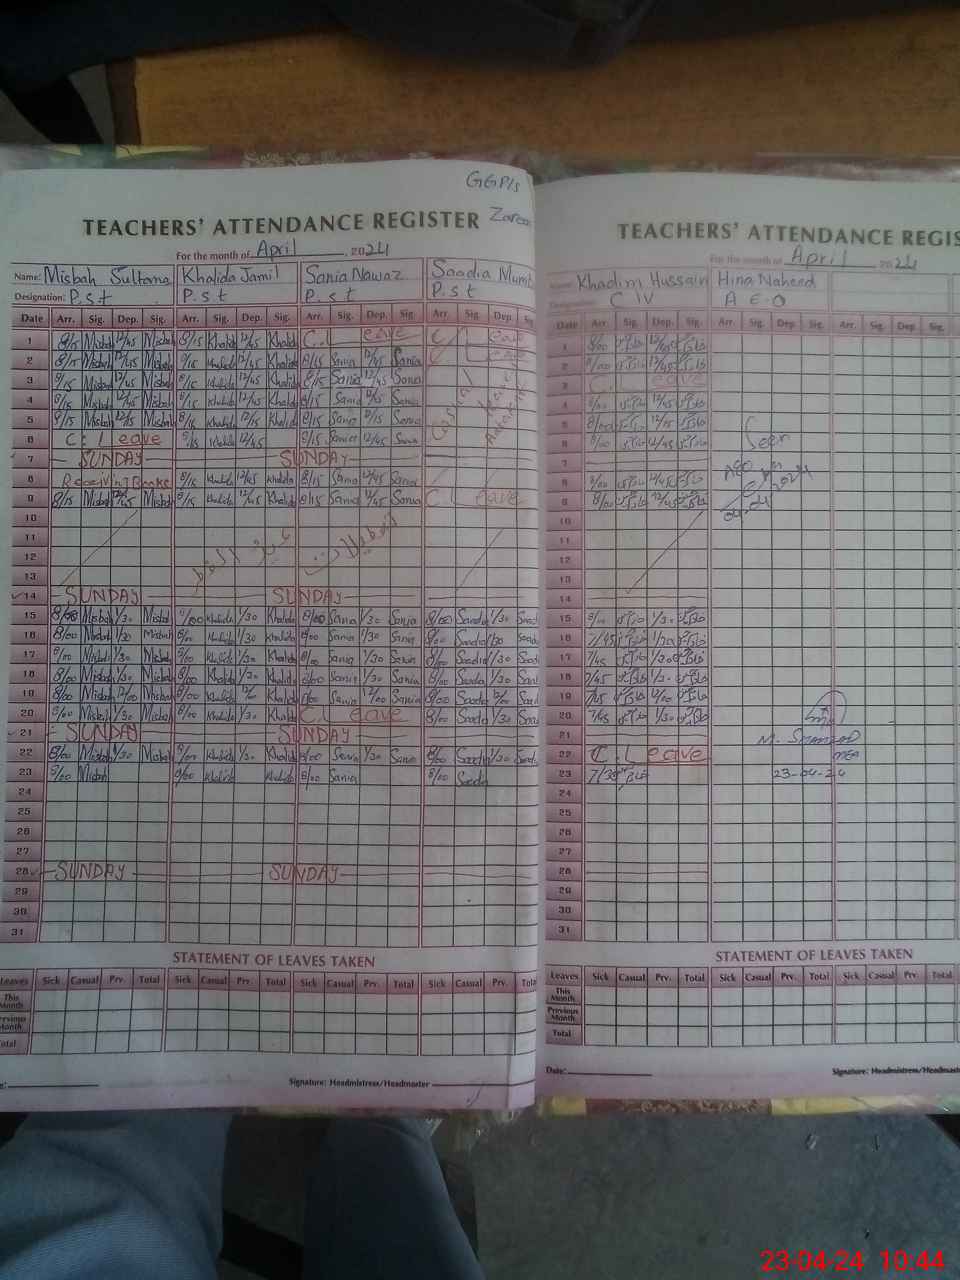 GGP/s
TEACHERS' ATTENDANCE REGISTER
For the month of April, 2024
Name: Misbah Sultana Khalida Jamil Sania Nawaz Saadia
Designation: P.s t P.s t P.s t P.s t
Date Arr. Sig. Dep. Sig. Arr. Sig. Dep. Sig. Arr. Sig. Dep. Sig. Arr. Sig. Dep. Sig.
1 8/15 Misbah 12/45 Misbah 8/15 Khalida 12/45 Khalida C. Leave C. Leave
2 8/15 Misbah 12/45 Misbah 8/15 Khalida 12/45 Khalida 8/15 Sania 12/45 Sania C Leave
3 8/15 Misbah 12/45 Misbah 8/15 Khalida 12/45 Khalida 8/15 Sania 12/45 Sania
4 8/15 Misbah 12/45 Misbah 8/15 Khalida 12/45 Khalida 8/15 Sania 12/45 Sania
5 8/15 Misbah 12/15 Misbah 8/15 Khalida 12/15 Khalida 8/15 Sania 12/15 Sania
6 C. Leave 8/15 Khalida 12/45 8/15 Sania 12/45 Sania
7 SUNDAY SUNDAY
8 Receiving Books 8/15 Khalida 12/45 Khalida 8/15 Sania 12/45 Sania
9 8/15 Misbah 12/45 Misbah 8/15 Khalida 12/45 Khalida 8/15 Sania 12/45 Sania C. Leave
10
11 تعطیلات عید الفطر
12
13
14 SUNDAY SUNDAY
15 8/00 Misbah 1/30 Misbah 8/00 Khalida 1/30 Khalida 8/00 Sania 1/30 Sania 8/00 Saadia 1/30 Saadia
16 8/00 Misbah 1/30 Misbah 8/00 Khalida 1/30 Khalida 8/00 Sania 1/30 Sania 8/00 Saadia 1/30 Saadia
17 8/00 Misbah 1/30 Misbah 8/00 Khalida 1/30 Khalida 8/00 Sania 1/30 Sania 8/00 Saadia 1/30 Saadia
18 8/00 Misbah 1/30 Misbah 8/00 Khalida 1/30 Khalida 8/00 Sania 1/30 Sania 8/00 Saadia 1/30
19 8/00 Misbah 12/00 Misbah 8/00 Khalida 12/00 Khalida 8/00 Sania 12/00 Sania 8/00 Saadia 12/00 Saadia
20 8/00 Misbah 1/30 Misbah 8/00 Khalida 1/30 Khalida C. Leave 8/00 Saadia 1/30 Saadia
21 SUNDAY SUNDAY
22 8/00 Misbah 1/30 Misbah 8/00 Khalida 1/30 Khalida 8/00 Sania 1/30 Sania 8/00 Saadia 1/30 Saadia
23 8/00 Misbah 8/00 Khalida Khalida 8/00 Sania 8/00 Saadia
24
25
26
27
28 SUNDAY SUNDAY
29
30
31
STATEMENT OF LEAVES TAKEN
Leaves Sick Casual Prv. Total Sick Casual Prv. Total Sick Casual Prv. Total Sick Casual Prv. Total
This Month
Previous Month
Total
Signature: Headmistress/Headmaster
TEACHERS' ATTENDANCE REGIS
For the month of April 2024
Name: Khadim Hussain Hina Naheed
Designation: C IV A E.O
Date Arr. Sig. Dep. Sig. Arr. Sig. Dep. Sig. Arr. Sig. Dep. Sig.
1 8/00 12/45
2 8/00 12/45
3 C. Leave
4 8/00 12/45
5 8/00 12/15
6 8/00 12/45 Seen
7
8 8/00 12/45
9 8/00 12/45
10
11
12
13
14
15 8/00 1/30
16 7/45 1/30
17 7/45 1/30
18 7/45 1/30
19 7/45 12/00
20 7/45 1/30
21
22 C. Leave
23 7/30 23-04-24
24
25
26
27
28
29
30
31
STATEMENT OF LEAVES TAKEN
Leaves Sick Casual Prv. Total Sick Casual Prv. Total Sick Casual Prv. Total
This Month
Previous Month
Total
Date: Signature: Headmistress/Headmaster
23-04-24 10:44